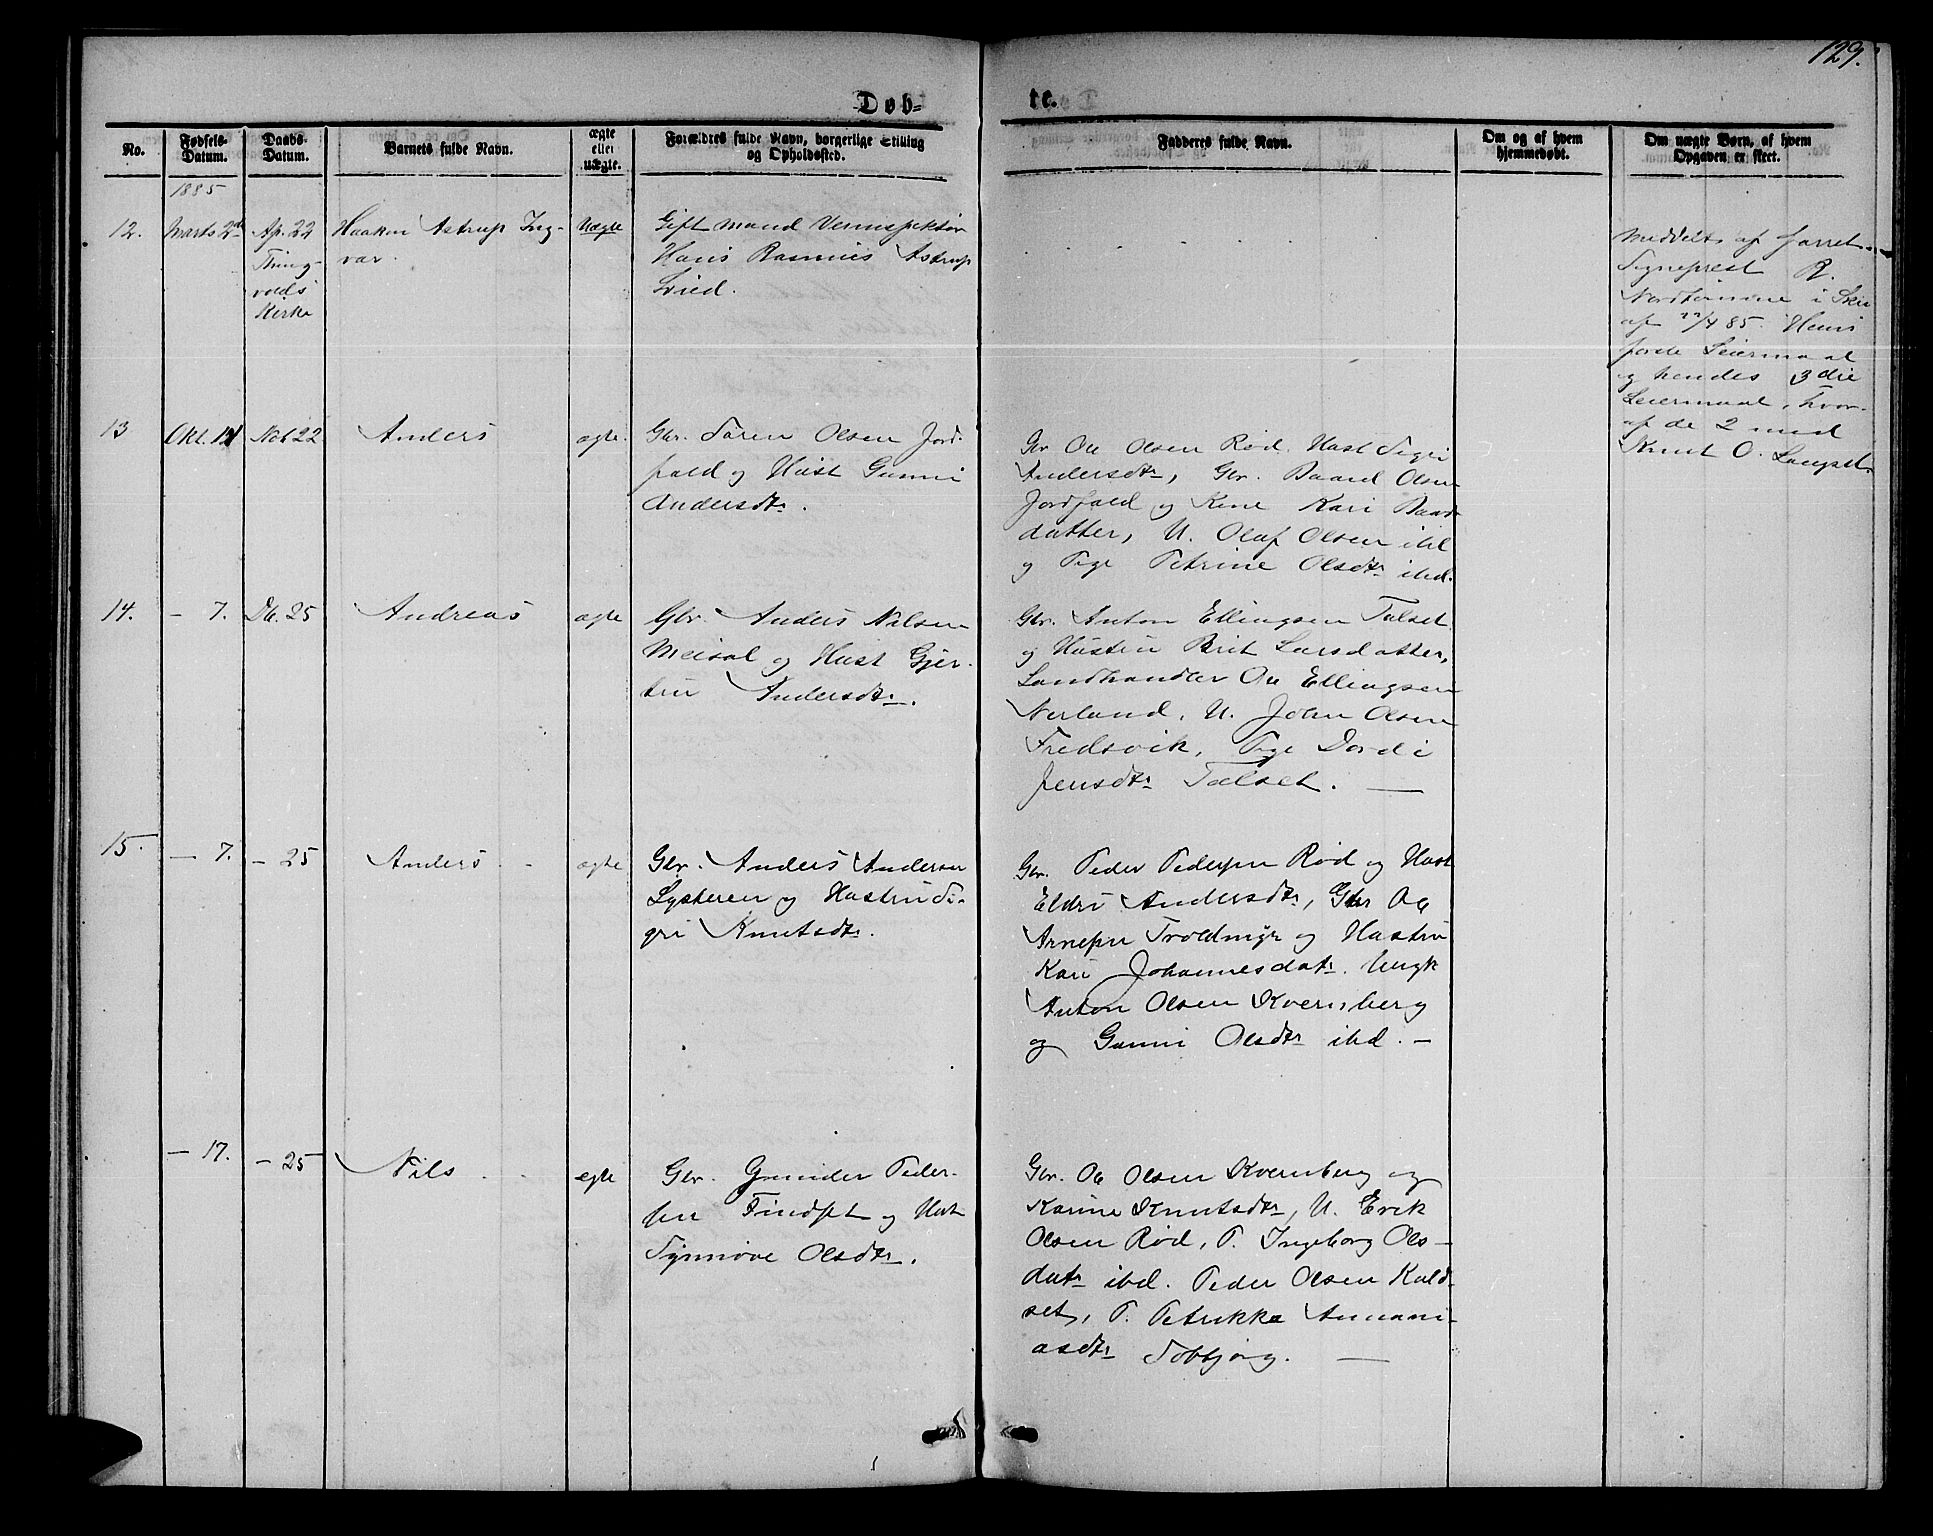 129.
Døb-
te.
No.
Fødsels-
Datum.
Daabs-
Datum.
Barnets fulde Navn.
ægte
eller
uægte.
Forældres fulde Navn, borgerlige Stilling
og Opholdssted.
Fadderes fulde Navn.
Om og af hvem
hjemmedøbt.
Om uægte Børn, af hvem
Opgaven er skeet.
1885
12.
Marts 2den
Ap. 22
Thing-
volds
Kirke
Haakon Astrup Ing-
var.
Uægte
Gift mand
Hans Rasmus Astrup
Meddelt af
Sogneprest R.
i
af 22/4 85. Hans
første Leiermaal
og hendes 3die
Leiermaal, hvor-
af de 2 med
Knut O.
13
Okt. 12
Nov 22
Anders
ægte.
Gbr. Søren Olsen Jord-
fald og Hust Gunni
Andersdtr.
Gbr Ole Olsen Rød. Hust Sigri
Andersdtr, Gbr. Baard Olsen
Jordfald og Kone Kari Baards
datter, U. Olaf Olsen ibd
og Pige Petrine Olsdtr ibd.
14.
- 7.
Db. 25
Andreas
ægte
Gbr. Anders Nilsen
Meisal og Hust Gjer-
tru Andersdtr.
Gbr. Anton Ellingsen Talset
og Hustru Brit Larsdatter,
Landhandler Ole Ellingsen
Nerland, U. John Olsen
Fredsvik, Pige Dordi
Jensdtr Talset. —
15.
- 7.
- 25
Anders
ægte
Gbr. Anders Andersen
Lysteren og Hustru Si-
gri Knutsdtr.
Gbr. Peder Pedersen Rød og Hust
Eldri Andersdtr, Gbr Ole
Arnesen Troldmyr og Hustru
Kari Johannesdatr. Ungk
Anton Olsen Kvernberg
og Gunni Olsdtr ibd. -
- 17.
- 25
Nils
egte
Gbr. Gunder Peder-
sen Findset og Hust
Synnøve Olsdtr.
Gbr. Ole Olsen Kvernberg og
Karine Knutsdtr, U. Erik
Olsen Rød, P. Ingeborg Ols-
datr ibd. Peder Olsen Kald-
set, P. Petrikke Annani-
asdtr Solbjørg. —